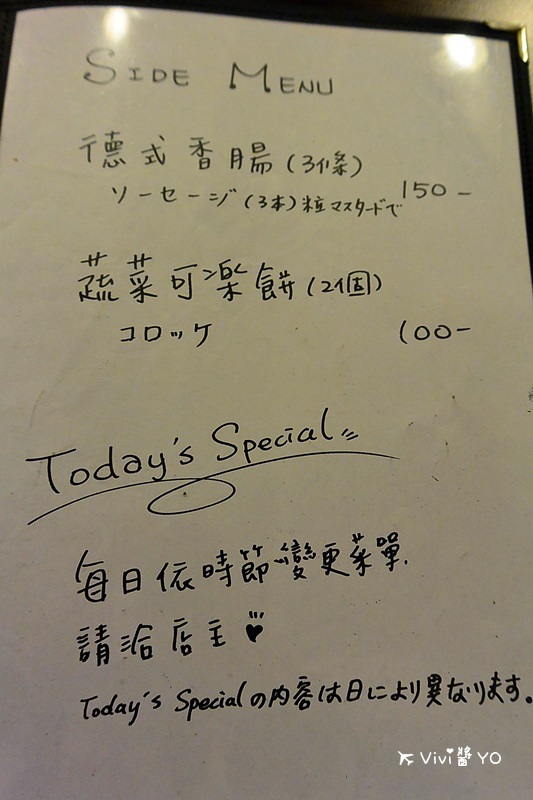 SIDE MENU
德式香腸(3條)
ソーセージ(3本)粒マスタードで 150-
蔬菜可樂餅(2個)
コロッケ 100-
Today's Special
每日依時節變更菜單.
請洽店主
Today's Specialの内容は日により異なります。
Vivi醬YO